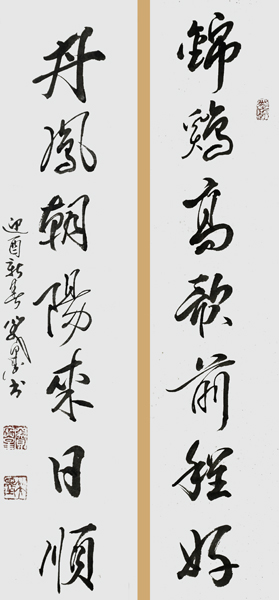 錦鷄高歌前程好
丹鳳朝陽來日順
迎酉新春
書